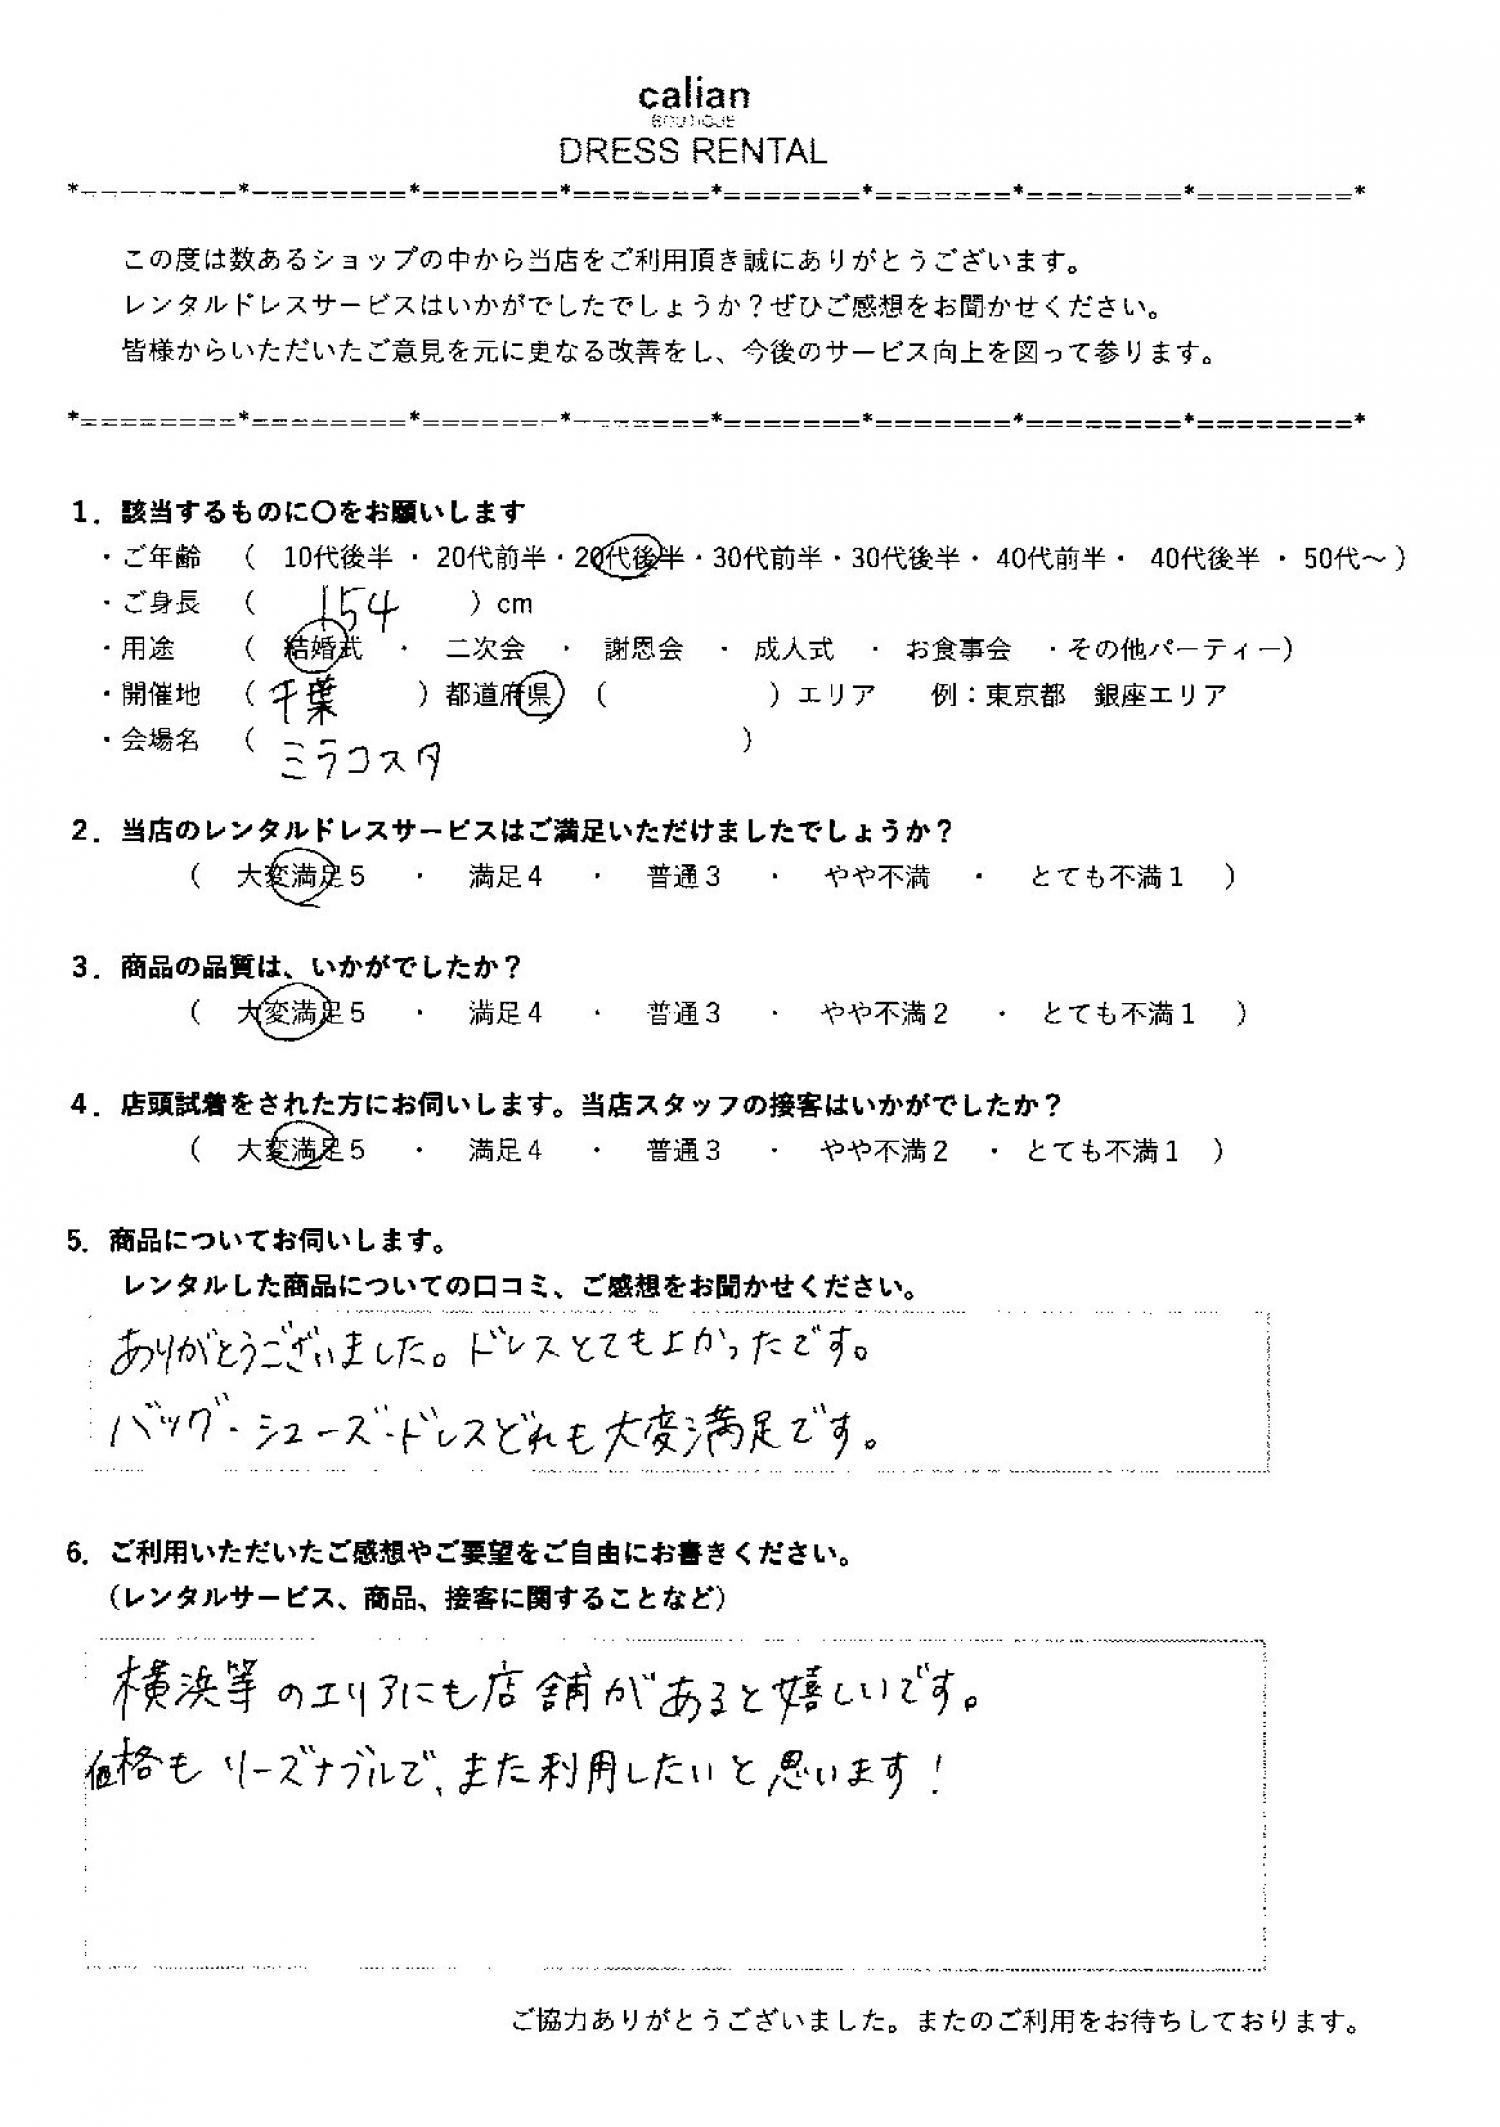 calian
BOUTIQUE
DRESS RENTAL
*========*========*=======*=======*=======*=======*========*========*
この度は数あるショップの中から当店をご利用頂き誠にありがとうございます。
レンタルドレスサービスはいかがでしたでしょうか？ぜひご感想をお聞かせください。
皆様からいただいたご意見を元に更なる改善をし、今後のサービス向上を図って参ります。
*========*========*=======*=======*=======*=======*========*========*
1．該当するものに〇をお願いします
・ご年齢 （ 10代後半 ・ 20代前半・20代後半・30代前半・30代後半・ 40代前半・ 40代後半 ・ 50代～）
・ご身長 （ 154 ）cm
・用途 （ 結婚式 ・ 二次会 ・ 謝恩会 ・ 成人式 ・ お食事会 ・その他パーティー）
・開催地 （ 千葉 ）都道府県 （ ）エリア 例：東京都 銀座エリア
・会場名 （ ミラコスタ ）
2．当店のレンタルドレスサービスはご満足いただけましたでしょうか？
（ 大変満足５ ・ 満足４ ・ 普通３ ・ やや不満 ・ とても不満１ ）
3．商品の品質は、いかがでしたか？
（ 大変満足５ ・ 満足４ ・ 普通３ ・ やや不満２ ・ とても不満１ ）
4．店頭試着をされた方にお伺いします。当店スタッフの接客はいかがでしたか？
（ 大変満足５ ・ 満足４ ・ 普通３ ・ やや不満２ ・ とても不満１ ）
5．商品についてお伺いします。
レンタルした商品についての口コミ、ご感想をお聞かせください。
ありがとうございました。ドレスとてもよかったです。
バッグ・シューズ・ドレスどれも大変満足です。
6．ご利用いただいたご感想やご要望をご自由にお書きください。
（レンタルサービス、商品、接客に関することなど）
横浜等のエリアにも店舗があると嬉しいです。
価格もリーズナブルで、また利用したいと思います！
ご協力ありがとうございました。またのご利用をお待ちしております。